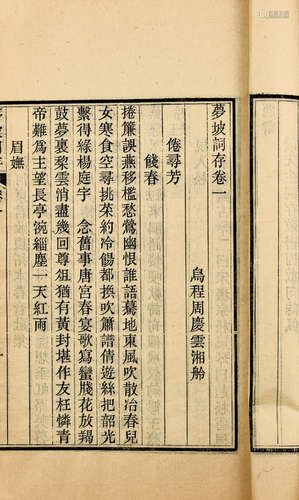 夢坡詞存卷一
烏程周慶雲湘舲
倦尋芳
餞春
捲簾誤燕移檻愁鶯幽恨誰語驀地東風吹散冶春兒
女寒食空尋挑菜約冷餳都換吹簫譜倩遊絲把韶光
繫得綠楊庭宇　念舊事唐宮春宴歌寫蠻牋花放羯
鼓夢裏棃雲消盡幾回尊俎猶有黃封堪作友枉憐靑
帝難爲主望長亭涴緇塵一天紅雨
眉嫵